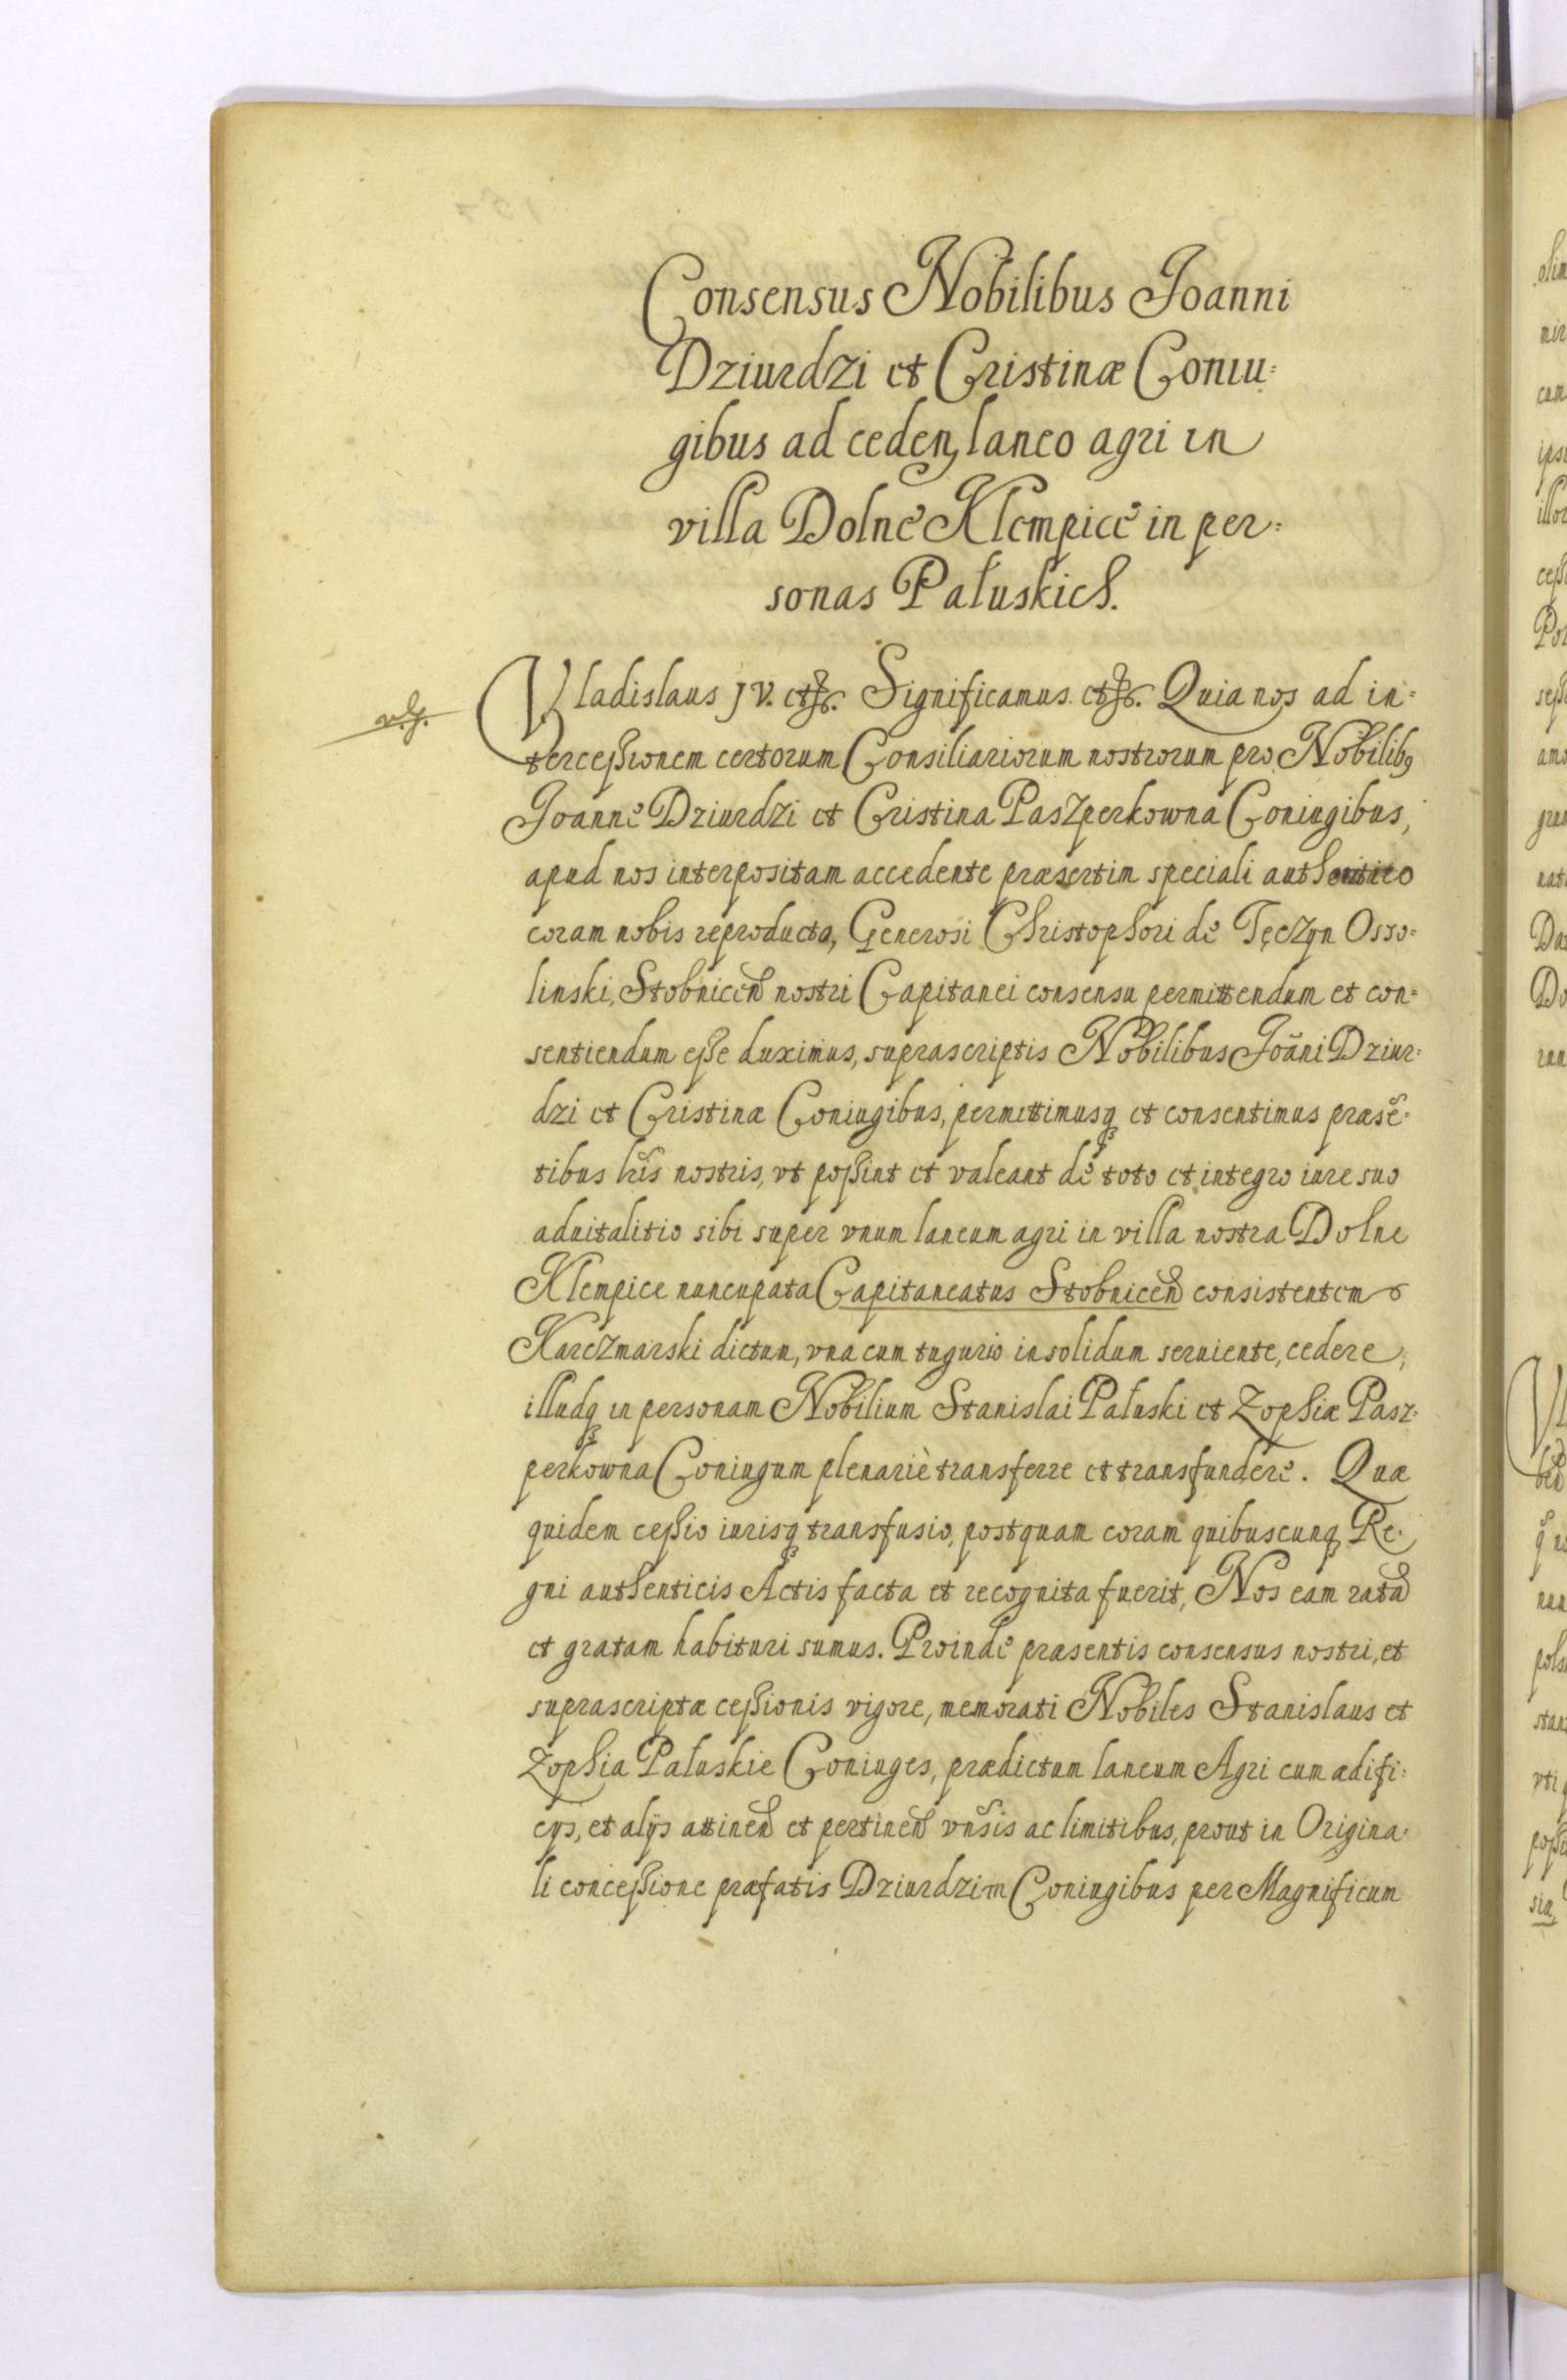 Consensus Nobilibus Joanni
Dziurdzi et Cristinæ Coniu=
gibus ad ceden, laneo agri in
villa Dolne Klempice in per=
sonas Pałuskich.
Vladislaus JV. etc. Significamus etc. Quia nos ad in=
tercessionem certorum Consiliariorum nostrorum pro Nobilibꝰ
Joanne Dziurdzi et Cristina Paszperkowna Coniugibus,
apud nos interpositam accedente præsertim speciali authentico
coram nobis reproducto, Generosi Christophori de Tęczyn Osso=
linski, Stobniceñ nostri Capitanei consensu permittendum et con=
sentiendum esse duximus, suprascriptis Nobilibus Joãni Dziur=
dzi et Cristinæ Coniugibus, permittimusq et consentimus præsẽ=
tibus lr̃is nostris, vt possint et valeant de toto et integro iure suo
aduitalitio sibi super vnum laneum agri in villa nostra Dolne
Klempice nuncupata Capitaneatus Stobniceñ consistentem
Karczmarski dictum, vna cum tugurio insolidum seruiente, cedere,
illudq in personam Nobilium Stanislai Pałuski et Zophiæ Pasz=
perkowna Coniugum plenariè transferre et transfundere. Quæ
quidem cessio iurisq transfusio, postquam coram quibuscunq Re=
gni authenticis Actis facta et recognita fuerit, Nos eam ratã
et gratam habituri sumus. Proinde præsentis consensus nostri, et
suprascriptæ cessionis vigore, memorati Nobiles Stanislaus et
Zophia Pałuskie Coniuges, prædictum laneum Agri cum ædifi=
cys, et alÿs attineñ et pertineñ vñsis ac limitibus, prout in Origina=
li concessione præfatis Dziurdzim Coniugibus per Magnificum